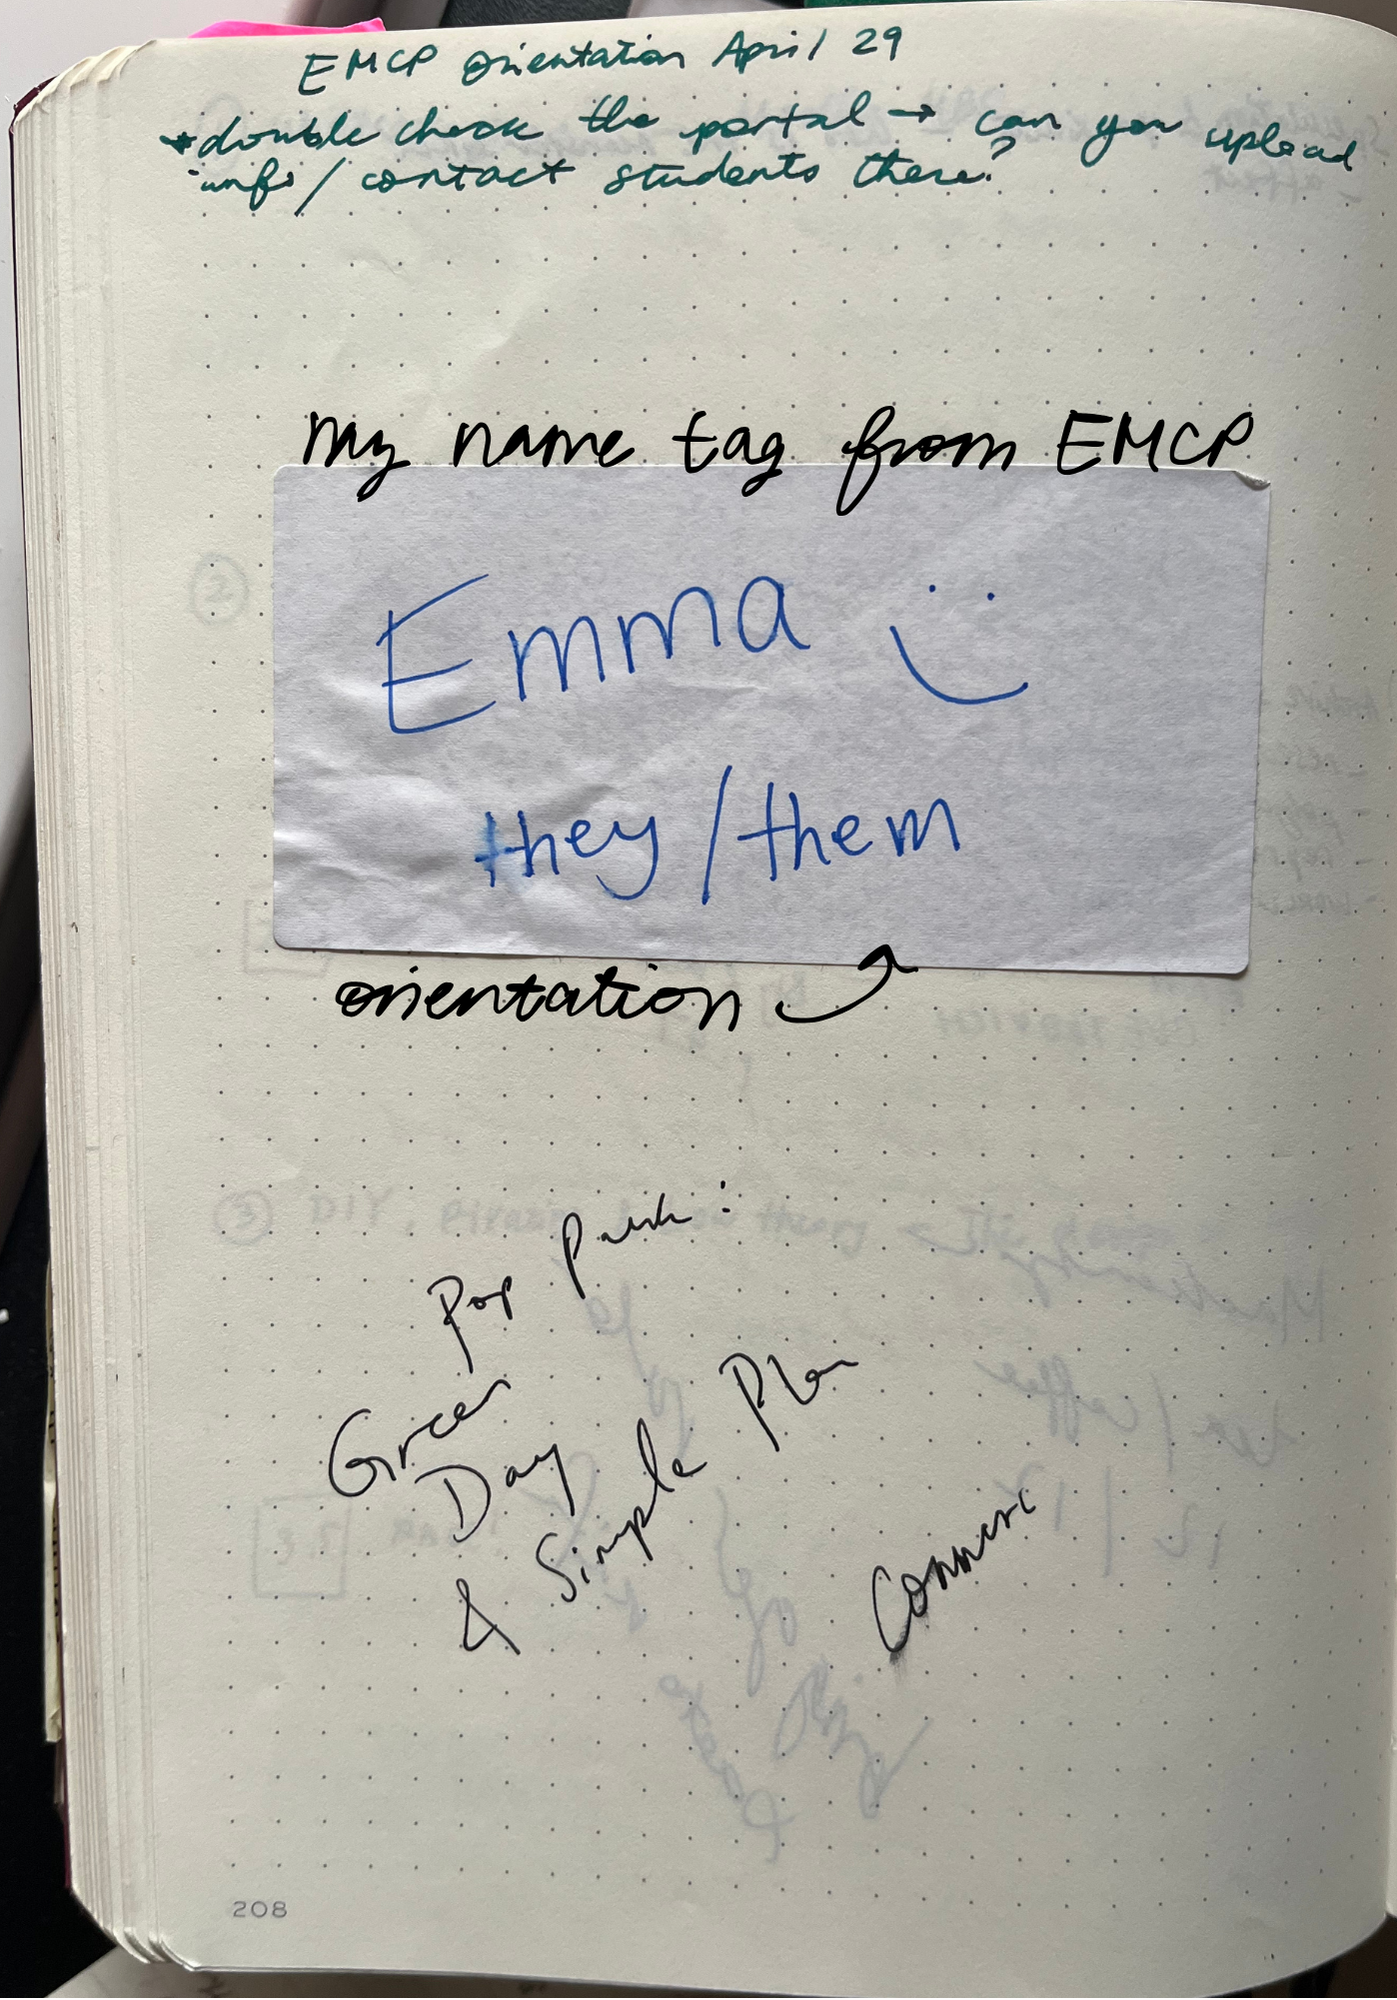 EMCP orientation April 29
*double check the portal → can you upload
info / contact students there?
my name tag from EMCP
Emma :)
they/them
orientation
Pop Punk:
Green
Day
& Simple Plan
208